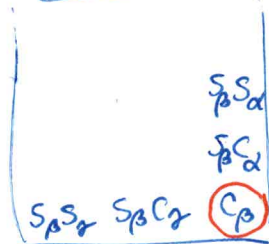 SβSα
SβCα
SβSγ SβCγ Cβ